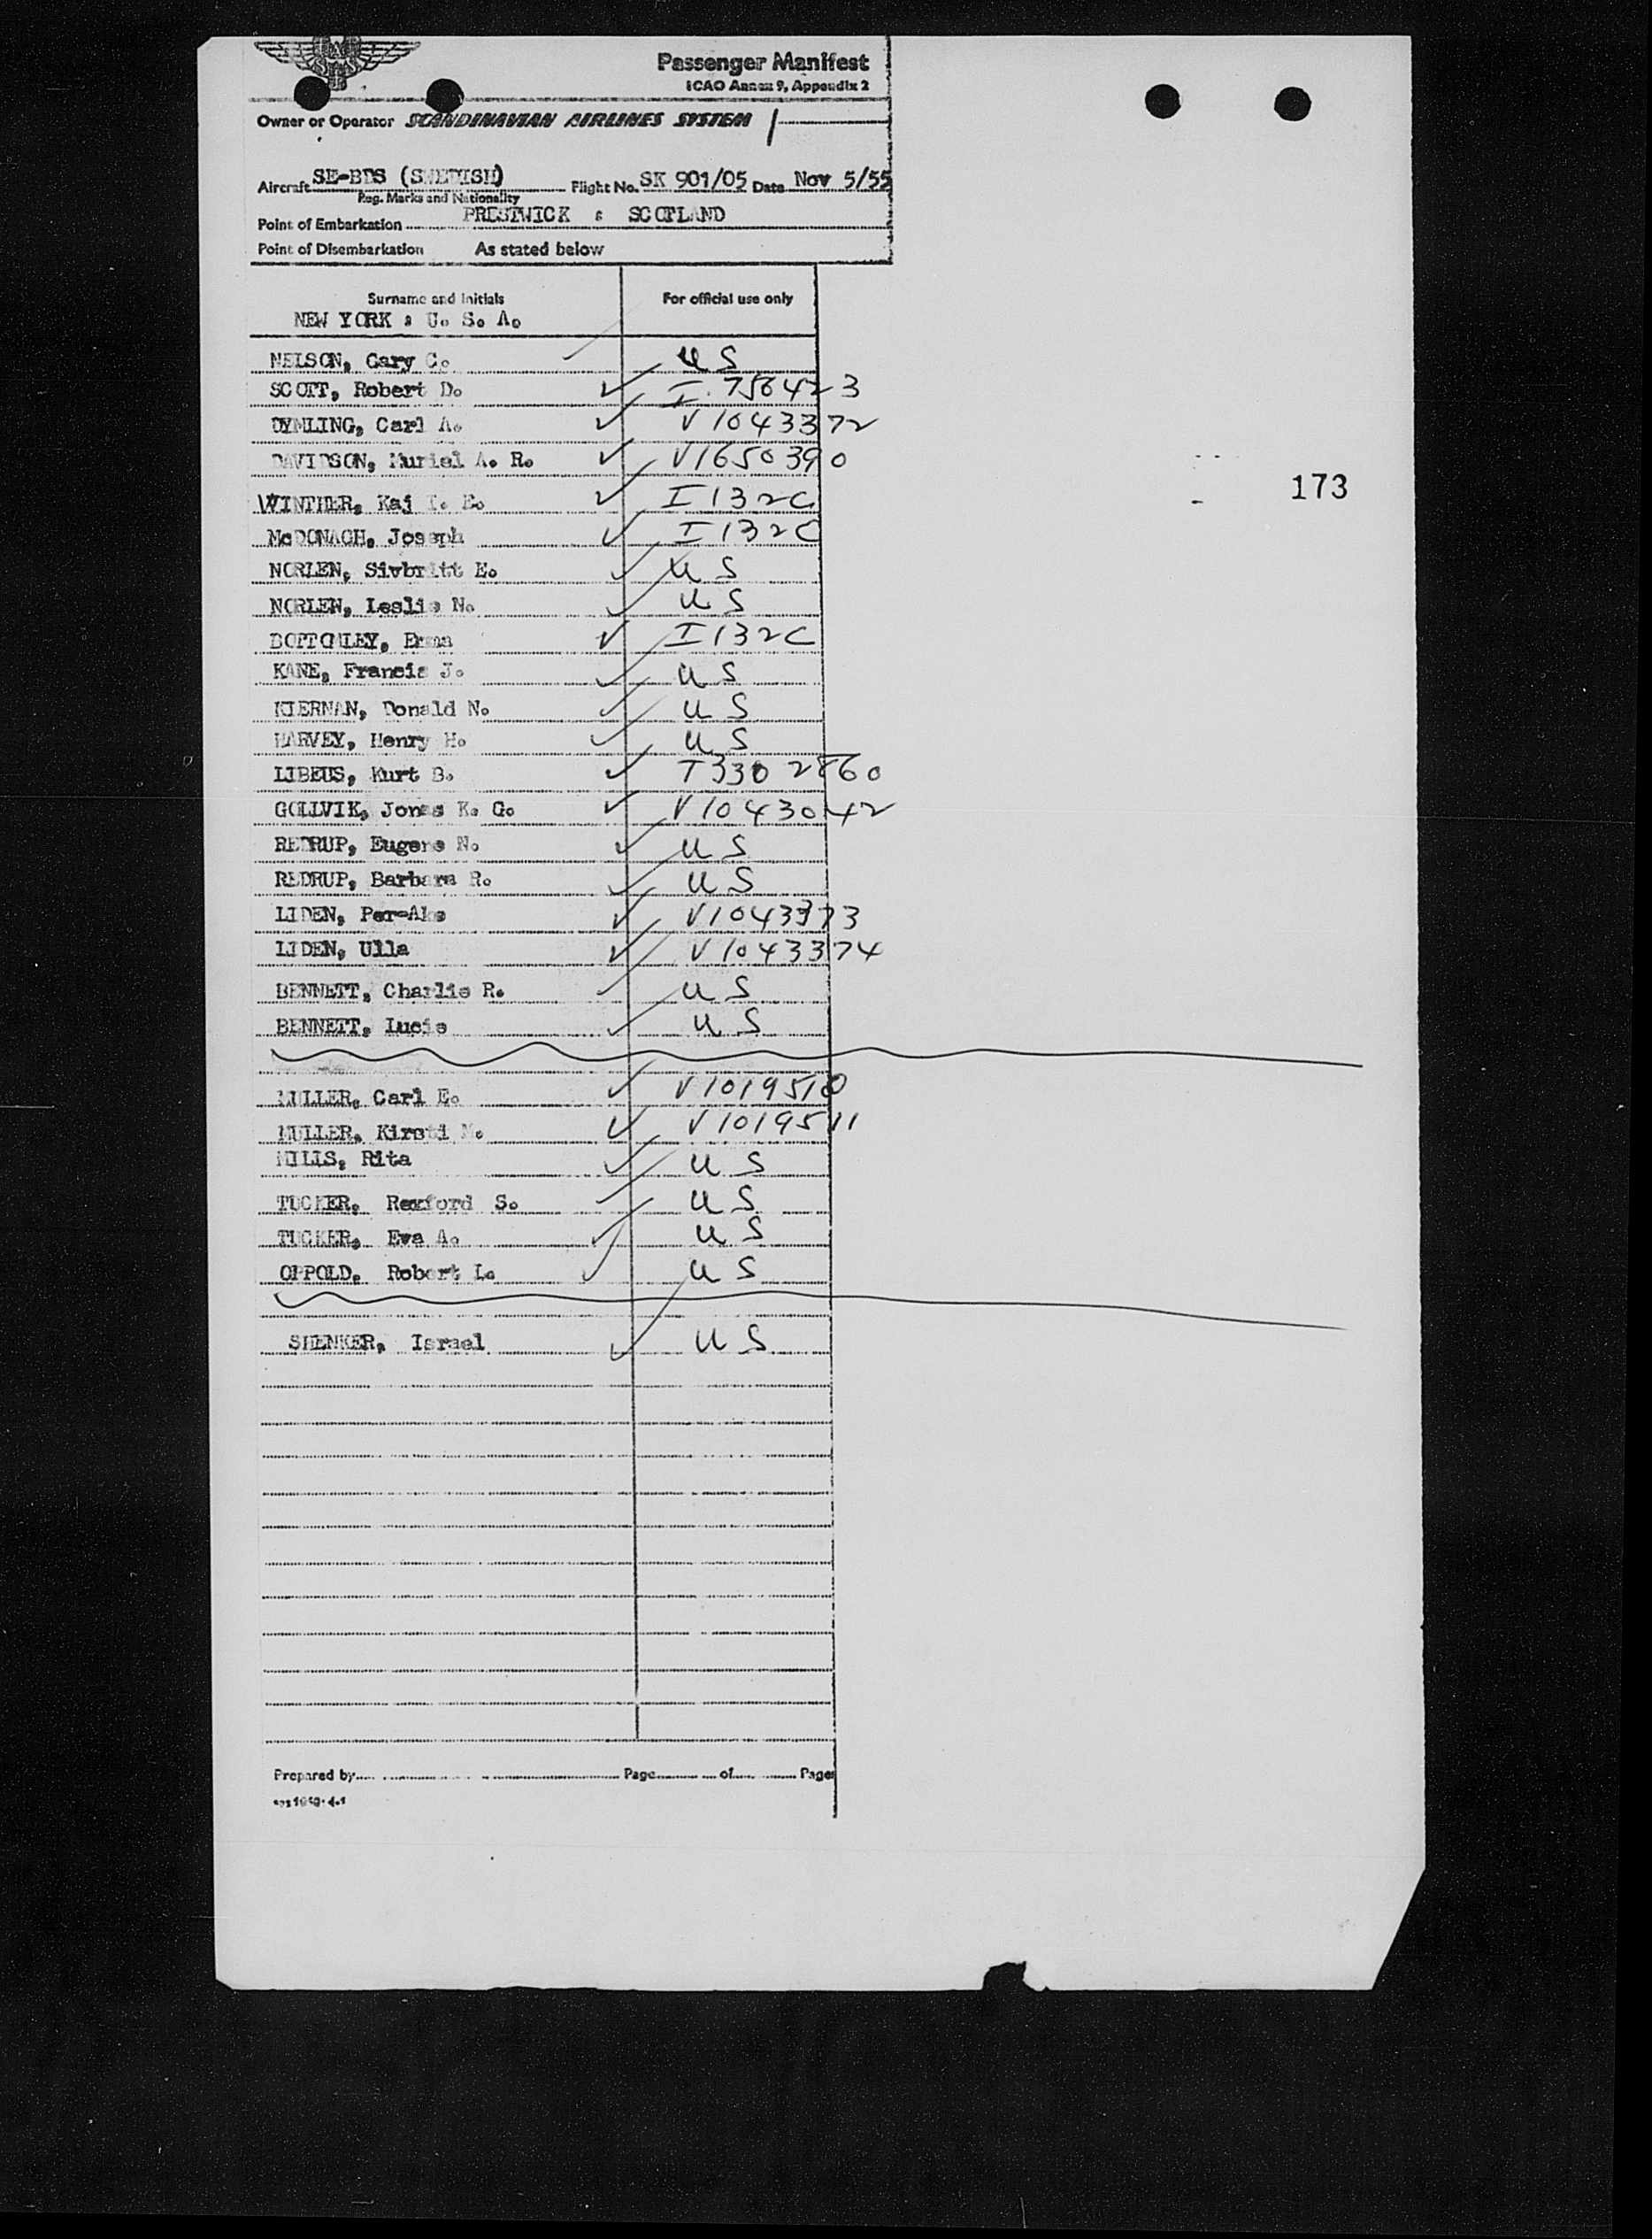 Passenger Manifest
ICAO Annex 9, Appendix 2
Owner or Operator SCANDINAVIAN AIRLINES SYSTEM
Aircraft SE-BDS (SWEDISH) Flight No. SK 901/05 Date Nov 5/55
Reg. Marks and Nationality
Point of Embarkation PRESTWICK : SCOTLAND
Point of Disembarkation As stated below
Surname and Initials For official use only
NEW YORK : U. S. A.
NELSON, Gary C. US
SCOTT, Robert D. I. 756423
DYMLING, Carl A. V1043372
DAVIDSON, Muriel A. R. V1650390
173
WINTHER, Kaj I132C
McDONAGH, Joseph I132C
NORLEN, Sivbritt E. US
NORLEN, Leslie N. US
BOTTOMLEY, Emma I132C
KANE, Francis J. US
KIERNAN, Donald N. US
HARVEY, Henry H. US
LIBEUS, Kurt B. T3302860
GOLLVIK, Jonas K. G. V1043042
REDRUP, Eugene N. US
REDRUP, Barbara R. US
LIDEN, Per-Ake V1043373
LIDEN, Ulla V1043374
BENNETT, Charlie R. US
BENNETT, Lucie US
MULLER, Carl E. V1019510
MULLER, Kirsti M. V1019511
MILLS, Rita US
TUCKER, Rexford S. US
TUCKER, Eva A. US
OPPOLD, Robert L. US
SHENKER, Israel US
Prepared by Page of Pages